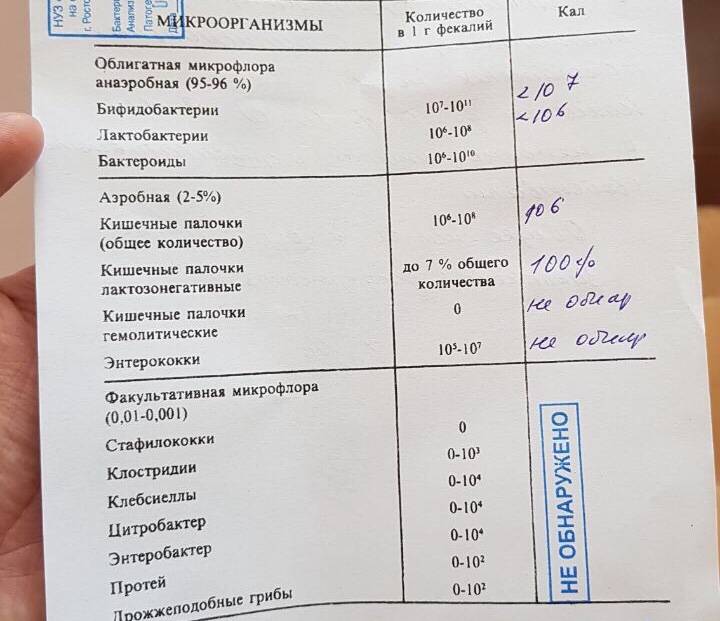 НУЗ
на
г. Рост
Бактер
Анализ
Патоге
МИКРООРГАНИЗМЫ Количество в 1 г фекалий Кал
Облигатная микрофлора
анаэробная (95-96 %)
Бифидобактерии 10⁷-10¹¹ <10 7
Лактобактерии 10⁶-10⁸ <10 6
Бактероиды 10⁶-10¹⁰
Аэробная (2-5%)
Кишечные палочки
(общее количество) 10⁶-10⁸ 10 6
Кишечные палочки
лактозонегативные до 7 % общего количества 100%
Кишечные палочки
гемолитические 0 не обнар
Энтерококки 10⁵-10⁷ не обнар
Факультативная микрофлора
(0,01-0,001)
Стафилококки 0
Клостридии 0-10³
Клебсиеллы 0-10⁴
Цитробактер 0-10⁴
Энтеробактер 0-10⁴
Протей 0-10²
Дрожжеподобные грибы 0-10²
НЕ ОБНАРУЖЕНО